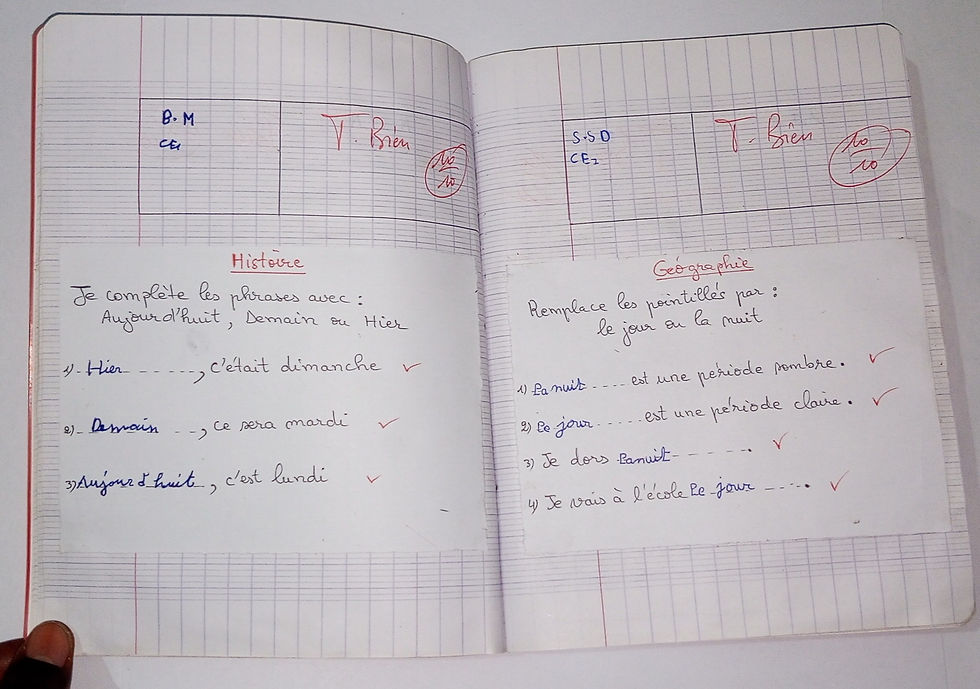 B.M
CE1
T. Bien
10/10
Histoire
Je complète les phrases avec :
Aujourd'huit, Demain ou Hier
1)- Hier ------, c'était dimanche
2)- Demain --, ce sera mardi
3) Aujourd'huit, c'est lundi
S.SD
CE2
T. Bien
10/10
Géographie
Remplace les pointillés par :
le jour ou la nuit
1) La nuit ---- est une période sombre.
2) Le jour ----- est une période claire.
3) Je dors La nuit ------.
4) Je vais à l'école Le jour ----.